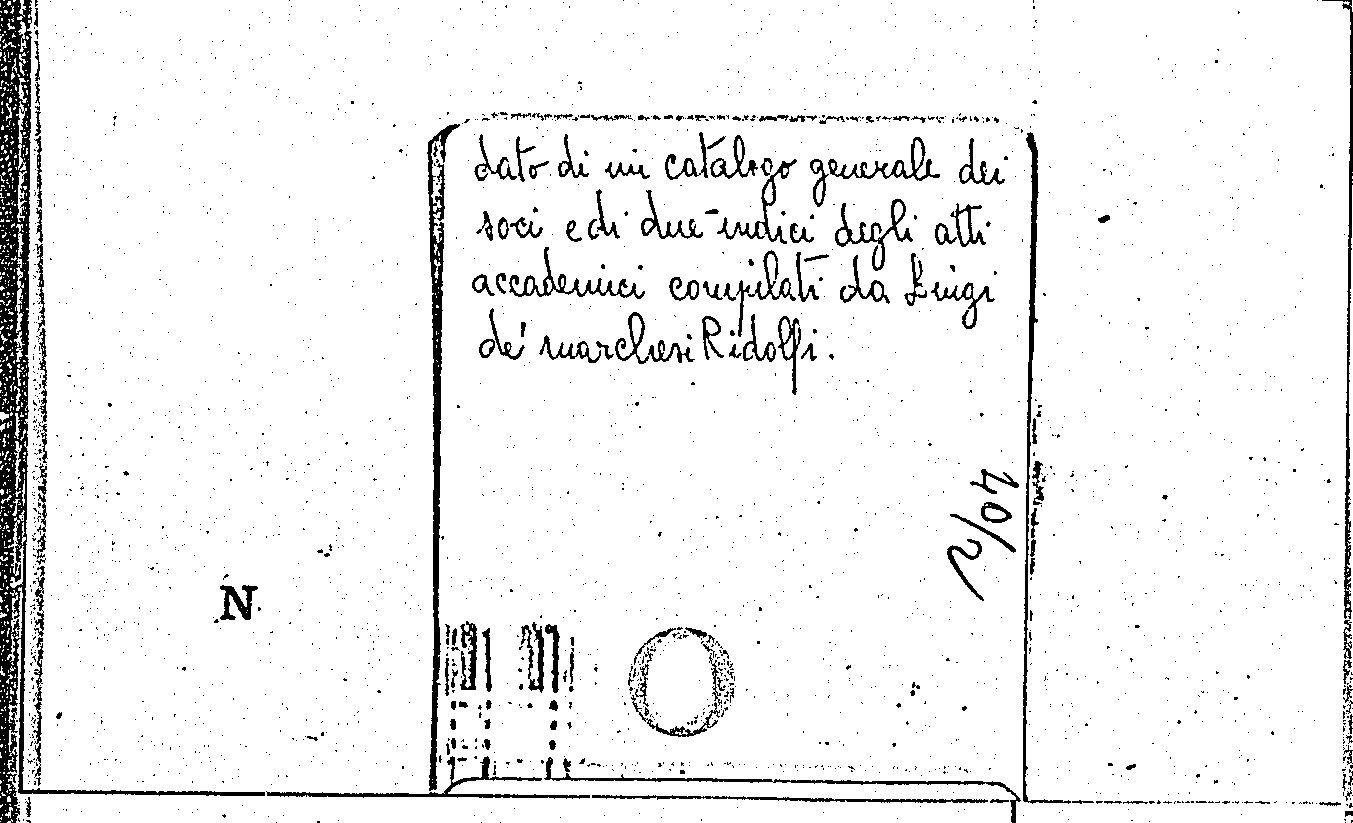 dato di un catalogo generale dei
soci e di due indici degli atti
accademici compilati da Luigi
de' marchesi Ridolfi.
40/2
N